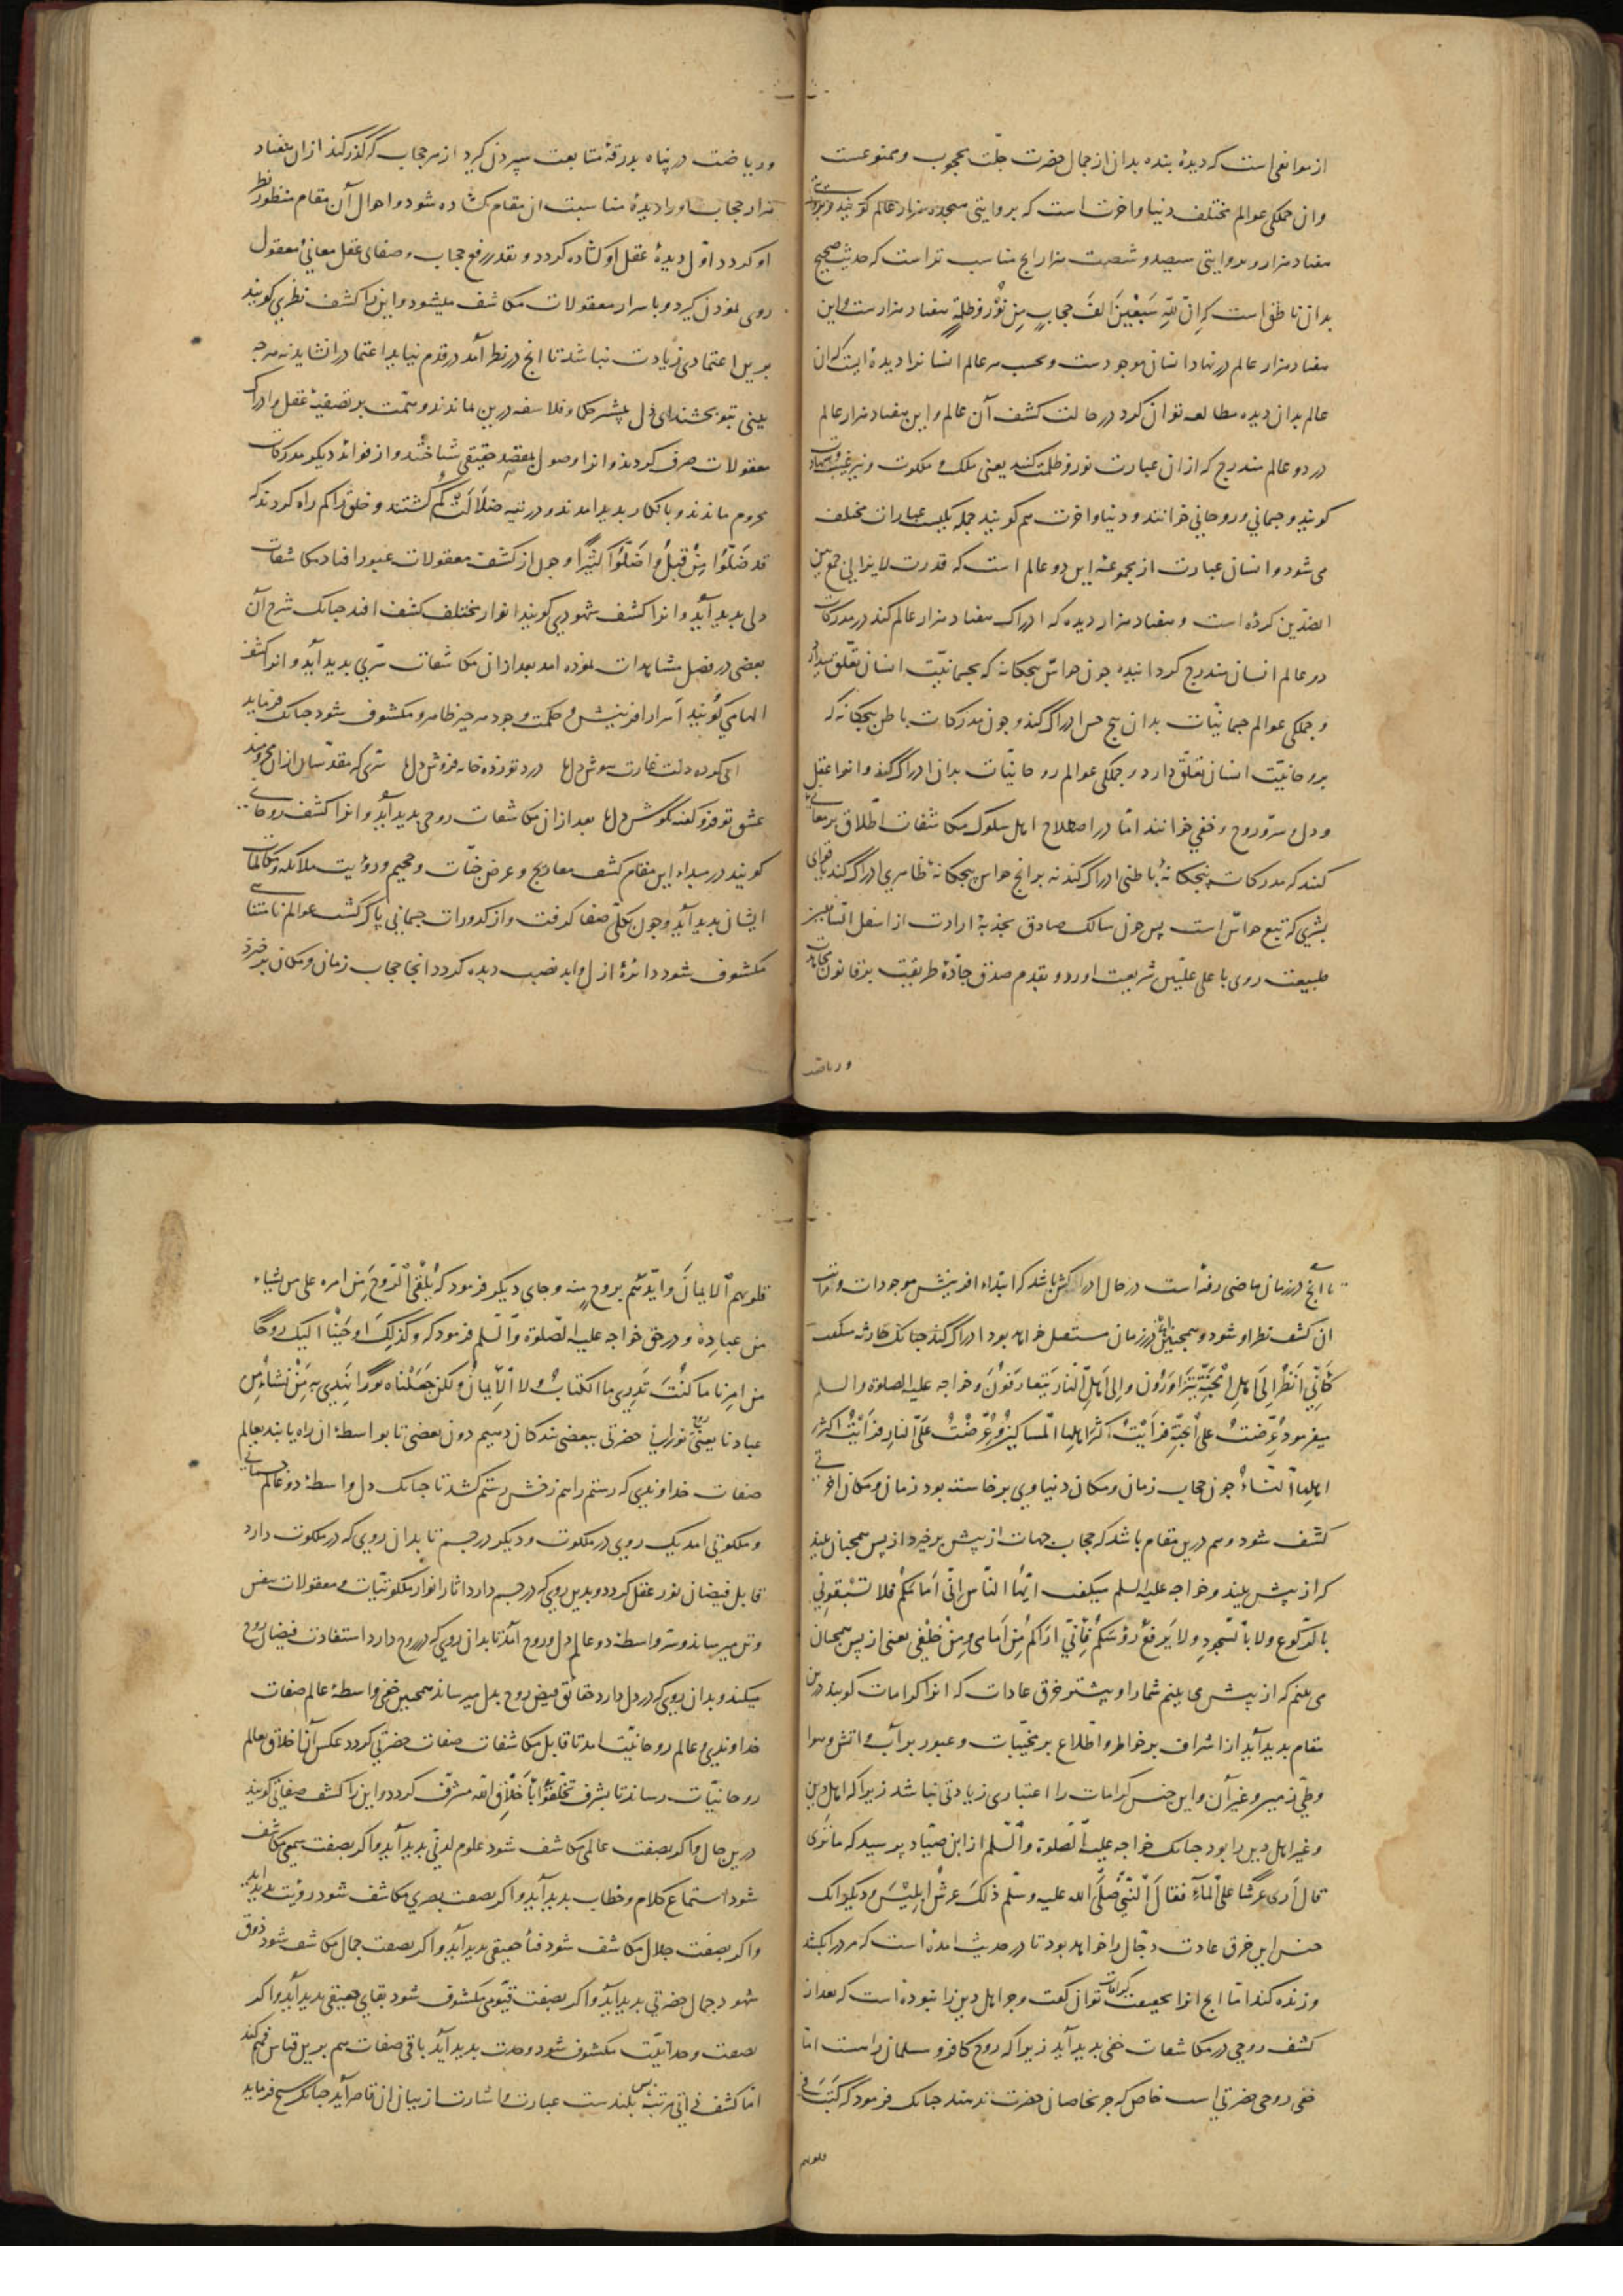 از موانعی است که دیدهٔ بنده بدان از جمال حضرت جلّت محجوب و ممنوعست
وان جملکی عوالم مختلف دنیا واخرت است که بروایتی هیجده هزار عالم کویند وبروایتی
هفتاد هزار وبروایتی سیصد و شصت هزار ایچ مناسب تراست که حدیث صحیح
بدان ناطق است که اِنَّ لِلّهِ سَبْعِینَ اَلفَ حِجابٍ مِن نُوْرٍ وَظلمةٍ هفتاد هزارست واین
هفتاد هزار عالم در نهاد انسان موجودست وبحسب هر عالم انسانرا دیدهٔ ایست که ان
عالم بدان دیده مطالعه توان کرد در حالت کشف آن عالم واین هفتاد هزار عالم
در دو عالم مندرج که ازان عبارت نور و ظلمت کنند یعنی ملک و ملکوت ونیز غیب وشهادت
کویند وجسمانی وروحانی خوانند ودنیا واخرت هم کویند جمله یکیست عبارات مختلف
می شود وانسان عبارت از مجموعهٔ این دو عالم است که قدرت لایزالی جمع بین
الضدّین کرده است وهفتاد هزار دیده که ادراک هفتاد هزار عالم کند در مدرکات
دو عالم انسان مندرج کردانیده جون حواسّ پنجکانه که بجسمانیّت انسان تعلّق دارد
وجملکی عوالم جسمانیّات بدان پنج حس ادراک کند وجون مدرکات باطن پنجکانه که
بروحانیّت انسان تعلّق دارد وجملکی عوالم روحانیّات بدان ادراک کند وانرا عقل
ودل وسرّ وروح وخفی خوانند امّا در اصطلاح اهل سلوک مکاشفات اطلاق بر معانی
کنند که مدرکات پنجکانهٔ باطنی ادراک کند نه بر انچ حواس پنجکانهٔ ظاهری ادراک کند یا قوای
بشری که تبع حواسّ است پس جون سالک صادق بجذبهٔ ارادت از اسفل السّافلین
طبیعت روی باعلی علیّین شریعت اورد وبقدم صدق جادّهٔ طریقت بر قانون مجاهدت
وریاضت
وریاضت در پناه بدرقهٔ متابعت سپردن کیرد از هر حجاب که گذر کند ازان هفتاد
هزار حجاب اورا دیدهٔ مناسبت ان مقام کشاده شود واحوال آن مقام منظور نظر
او کردد اوّل دیدهٔ عقل او کشاده کردد وبقدر رفع حجاب وصفای عقل معانیٔ معقول
روی نمودن کیرد وباسرار معقولات مکاشف میشود واینرا کشف نظری کویند
برین اعتمادی زیادت نباشد تا انچ در نظر آمد در قدم نیاید اعتماد را نشاید نه هرچه
بینی تتو بخشند ای دل بیشتر حکما وفلاسفه درین بماندند وهمّت بر تصفیهٔ عقل وادراک
معقولات صرف کردند وانرا وصول بمقصد حقیقی شناختند واز فواید دیکر مدرکات
محروم ماندند وبانکار پدید امدند ودر تیه ضلالت کم گشتند وخلق را کم راه کردند که
قد ضَلّوا مِنْ قبلُ واَضَلّوا کثیراً وجون از کشف معقولات عبور افتاد مکاشفات
دلی پدید آید وانرا کشف شهودی کویند انوار مختلف کشف افتد جنانک شرح آن
بعضی در فصل مشاهدات نموده امد بعد ازان مکاشفات سرّی پدید آید وانرا کشف
الهامی کویند اسرار افرینش وحکمت وجود هر چیز ظاهر ومکشوف شود جنانک فرماید
ای کرده دلت غارت هوش دل‌ها درد تو زده خانه فروش دل‌ها سرّی که مقدّسان ازان محرومند
عشق تو فرو گفته بگوش دل‌ها بعد ازان مکاشفات روحی پدید آید وانرا کشف روحانی
کویند در مبداء این مقام کشف معاریج وعرض جنّات وجحیم ورؤیت ملائکه ومکالمات
ایشان پدید آید وجون بکلّی صفا کرفت واز کدورات جسمانی پاک گشت عوالم نامتناهی
مکشوف شود دائرهٔ ازل وابد نصب دیده کردد انجا حجاب زمان ومکان برخیزد
تا آنچ در زمان ماضی رفته است در حال ادراکش باشد که ابتداء افرینش موجودات ومراتب
ان کشف نظر او شود وهمچنین انچ در زمان مستقبل خواهد بود ادراک کند جنانک حارثه میکفت
کَاَنّی اَنظُرُ اِلَی اهلِ الجَنَّةِ یَتَزاوَرُوْن وَاِلی اَهلِ النّارِ یَتَعارَفُوْنَ وخواجه علیه الصلوة والسلم
میفرمود عُرِضَتْ عَلَیَّ الجَنّةُ فَرَأیْتُ اکثَرَ اهلِها المساکینَ وَعُرِضَتْ عَلَیَّ النّارُ فَرَأَیْتُ اکثَرَ
اهلِها النّساءَ جون حجاب زمان ومکان دنیاوی برخاسته بود زمان ومکان اخرتی
کشف شود وهم درین مقام باشد که حجاب جهات از پیش برخیزد از پس همچنان بیند
که از پیش بیند وخواجه علیه السلم میکفت ایّها النّاس اِنّی اَمامَکُمْ فَلا تَسْبِقونی
بالرّکوعِ ولا بالسّجودِ ولا یَرفَعْ رؤسَکُمْ فَاِنّی اَراکُمْ مِنْ اَمامی وَمِنْ خَلْفی یعنی از پس همچنان
می بینم که از پیش می بینم شمارا وبیشتر خرق عادات که انرا کرامات کویند درین
مقام پدید آید از اشراف بر خواطر واطّلاع بر مخیّبات وعبور بر آب واتش وهوا
وطیّ زمین وغیر آن واین جنس کرامات را اعتباری زیادتی نباشد زیرا که اهل دین
وغیر اهل دین را بود جنانک خواجه علیه الصلوة والسّلم از ابن صیّاد پرسید که ما تَری
قالَ اَری عَرشًا عَلَی المآءِ فَقالَ النّبِیُّ صَلَّی الله علیه وسلّم ذلکَ عَرشُ اِبْلِیْسَ ودیکرانک
جنس این خرق عادت دجّال را خواهد بود تا در حدیث امده است که مردرا بکشد
وزنده کند امّا انچ انرا بحقیقت کرامات توان گفت وجز اهل دین را نبوده است که بعد از
کشف روحی در مکاشفات خفی پدید آید زیرا که روح کافر ومسلمان راست امّا
خفی روحی حضرتی است خاص که جز بخاصان حضرت ندهند جنانک فرمود که کَتَبَ فی
قلوبهم
قلوبِهِم الایمانَ وایّدهُم بروحٍ منه وجای دیکر فرمود که یُلْقِی الرّوحَ مِن امره علی من یشاء
من عبادِه ودر حق خواجه علیه الصّلوة والسّلم فرمود که وَکَذلِکَ اَوحَیْنا الیک روحًا
من امرِنا ما کنْتَ تَدری ما الکتابُ ولا الایمانُ ولکن جعَلْناه نورًا نَهْدی بِه مَنْ نَشاءُ مِن
عبادنا یعنی روح نورانی حضرتی ببعضی بندکان دهیم دون بعضی تا بواسطهٔ ان راه یابند بعالم
صفات خداوندی که رستم را هم رخش رستم کشد تا جنانک دل واسطهٔ دو عالم جسمانی
وملکوتی امد یک روی در ملکوت ودیکر در جسم تا بدان روی که در ملکوت دارد
قابل فیضان نور عقل کردد وبدین روی که در جسم دارد اثار انوار ملکوتیّات ومعقولات بنفس
وتن میرساند وسرّ واسطهٔ دو عالم دل وروح امد تا بدان روی که در روح دارد استفادت فیضان روح
میکند وبدان روی که در دل دارد حقائق فیض روح بدل میرساند همچنین خفی واسطهٔ عالم صفات
خداوندی وعالم روحانیّت امد تا قابل مکاشفات صفات حضرتی کردد وعکس آن اخلاق بعالم
روحانیّات رساند تا بشرف تَخَلّقوا باَخْلاقِ الله مشرّف کردد واین را کشف صفاتی کویند
درین حال واکر بصفت عالمی مکاشف شود علوم لدنّی پدید آید واکر بصفت سمیعی مکاشف
شود استماع کلام وخطاب پدید آید واکر بصفت بصیری مکاشف شود رؤیت پدید اید
واکر بصفت جلال مکاشف شود فناء حقیقی پدید آید واکر بصفت جمال مکاشف شود ذوق
شهود جمال حضرتی پدید آید واکر بصفت قیّومی مکشوف شود بقای حقیقی پدید آید واکر
بصفت وحدانیّت مکشوف شود وحدت پدید آید باقی صفات هم برین قیاس فهم کند
امّا کشف ذاتی مرتبهٔ بس بلندست عبارت واشارت از بیان ان قاصر آید جنانک شیخ فرماید